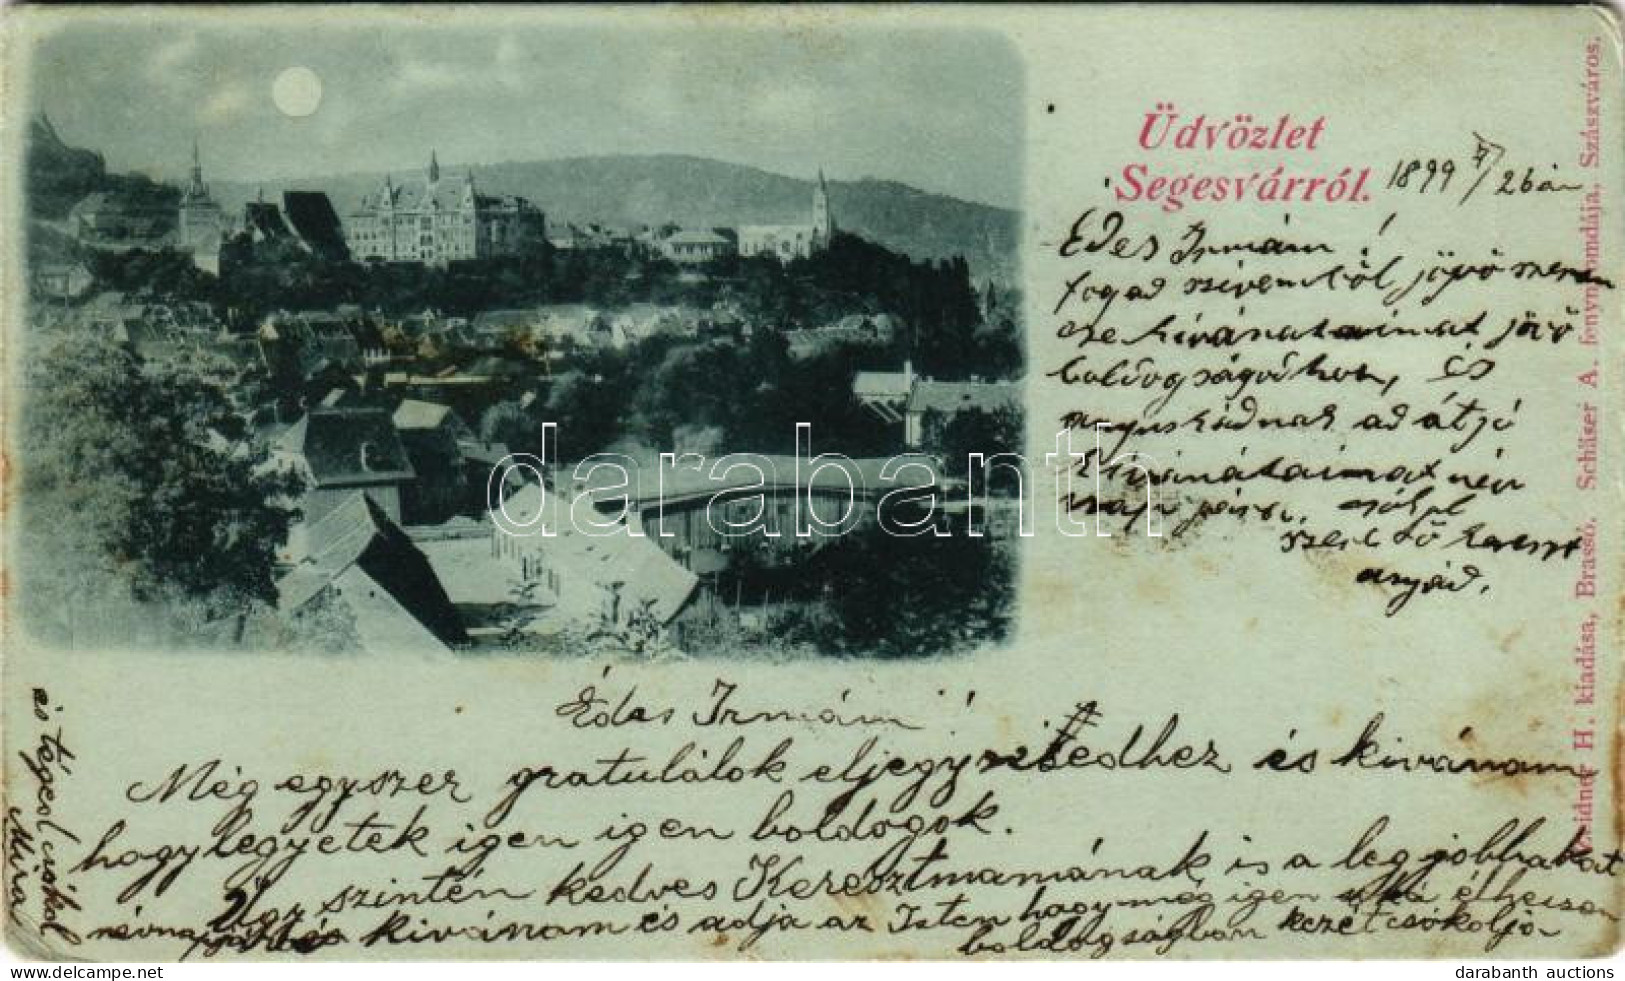 Üdvözlet
Segesvárról.
1899 V/26án
Édes Irmám!
fogad szivemből jövő szeren
cse kivánataimat jövő
boldogságodhoz, és
anyuskádnak ad átjó
kivánataimat név
napjára, csókol
szerető kereszt
anyád.
Édes Irmám!
Még egyszer gratulálok eljegyzésedhez és kivánom
hogy legyetek igen igen boldogok.
Úgy szintén kedves Keresztmamának is a legjobbakat
névnapjára kivánom és adja az Isten hogy még igen soká élhessen
boldogságban kezét csókolja
és tégesd csókol
Mira
Zeidner H. kiadása, Brassó. Schäser A. fénynyomdája, Szászváros.
darabanth
© the-saleroom.com
darabanth auctions